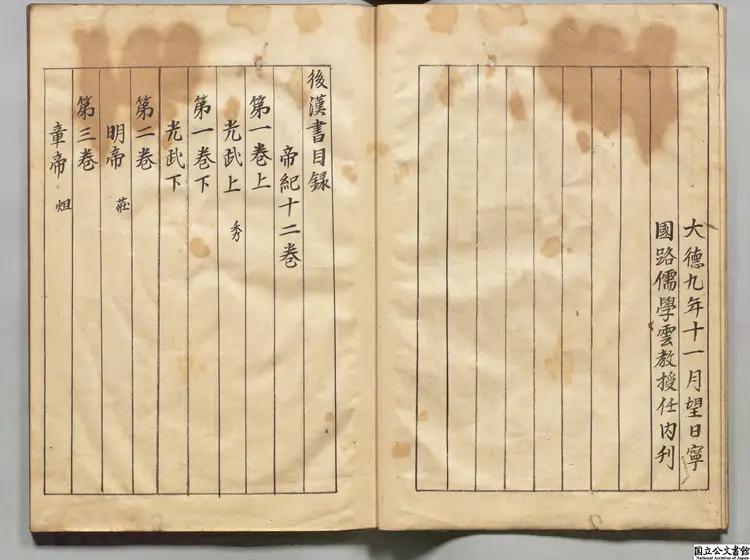 大德九年十一月望日寧
國路儒學雲教授任内刋
後漢書目録
帝紀十二卷
第一卷上
光武上 秀
第一卷下
光武下
第二卷
明帝 莊
第三卷
章帝 炟
国立公文書館
National Archives of Japan